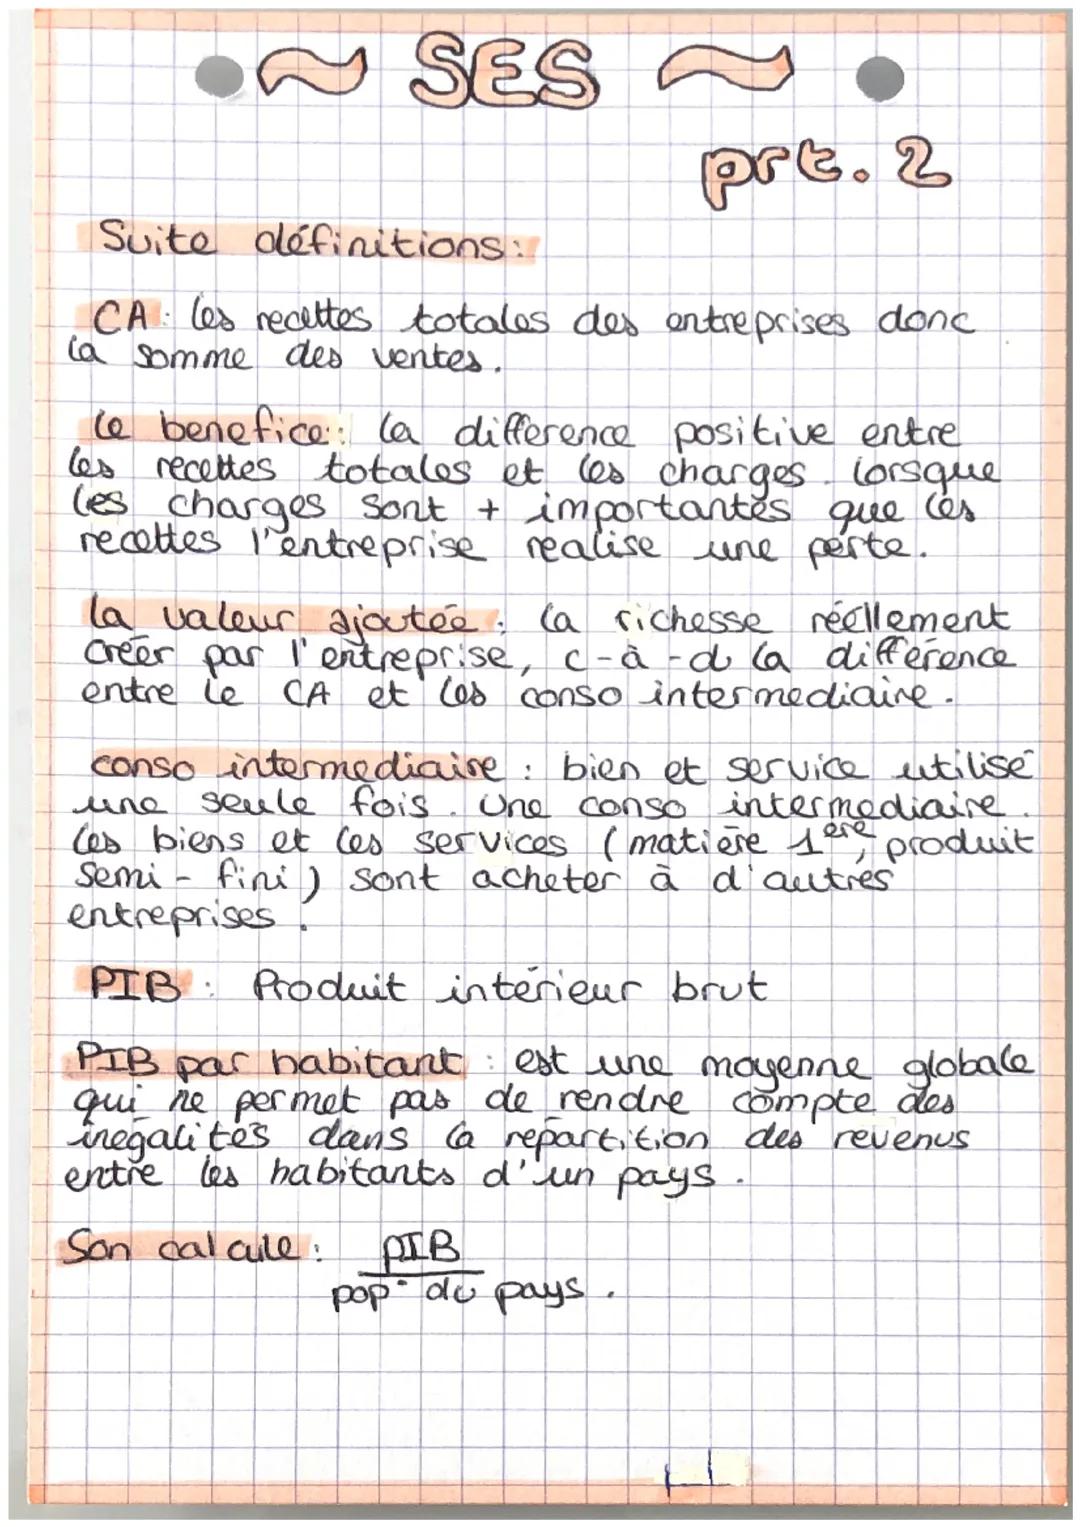 ~ SES ~
prt. 2
Suite définitions :
CA : les recettes totales des entreprises donc
la somme des ventes.
le benefice : la difference positive entre
les recettes totales et les charges. lorsque
les charges sont + importantes que les
recettes l'entreprise realise une perte.
la valeur ajoutée : la richesse réellement
créer par l'entreprise, c-à-d la différence
entre le CA et les conso intermediaire.
conso intermediaire : bien et service utilisé
une seule fois. Une conso intermediaire.
les biens et les services (matière 1ère, produit
semi-fini) sont acheter à d'autres
entreprises.
PIB : Produit intérieur brut
PIB par habitant : est une moyenne globale
qui ne permet pas de rendre compte des
inégalités dans la répartition des revenus
entre les habitants d'un pays.
Son calcule : PIB
pop° du pays.